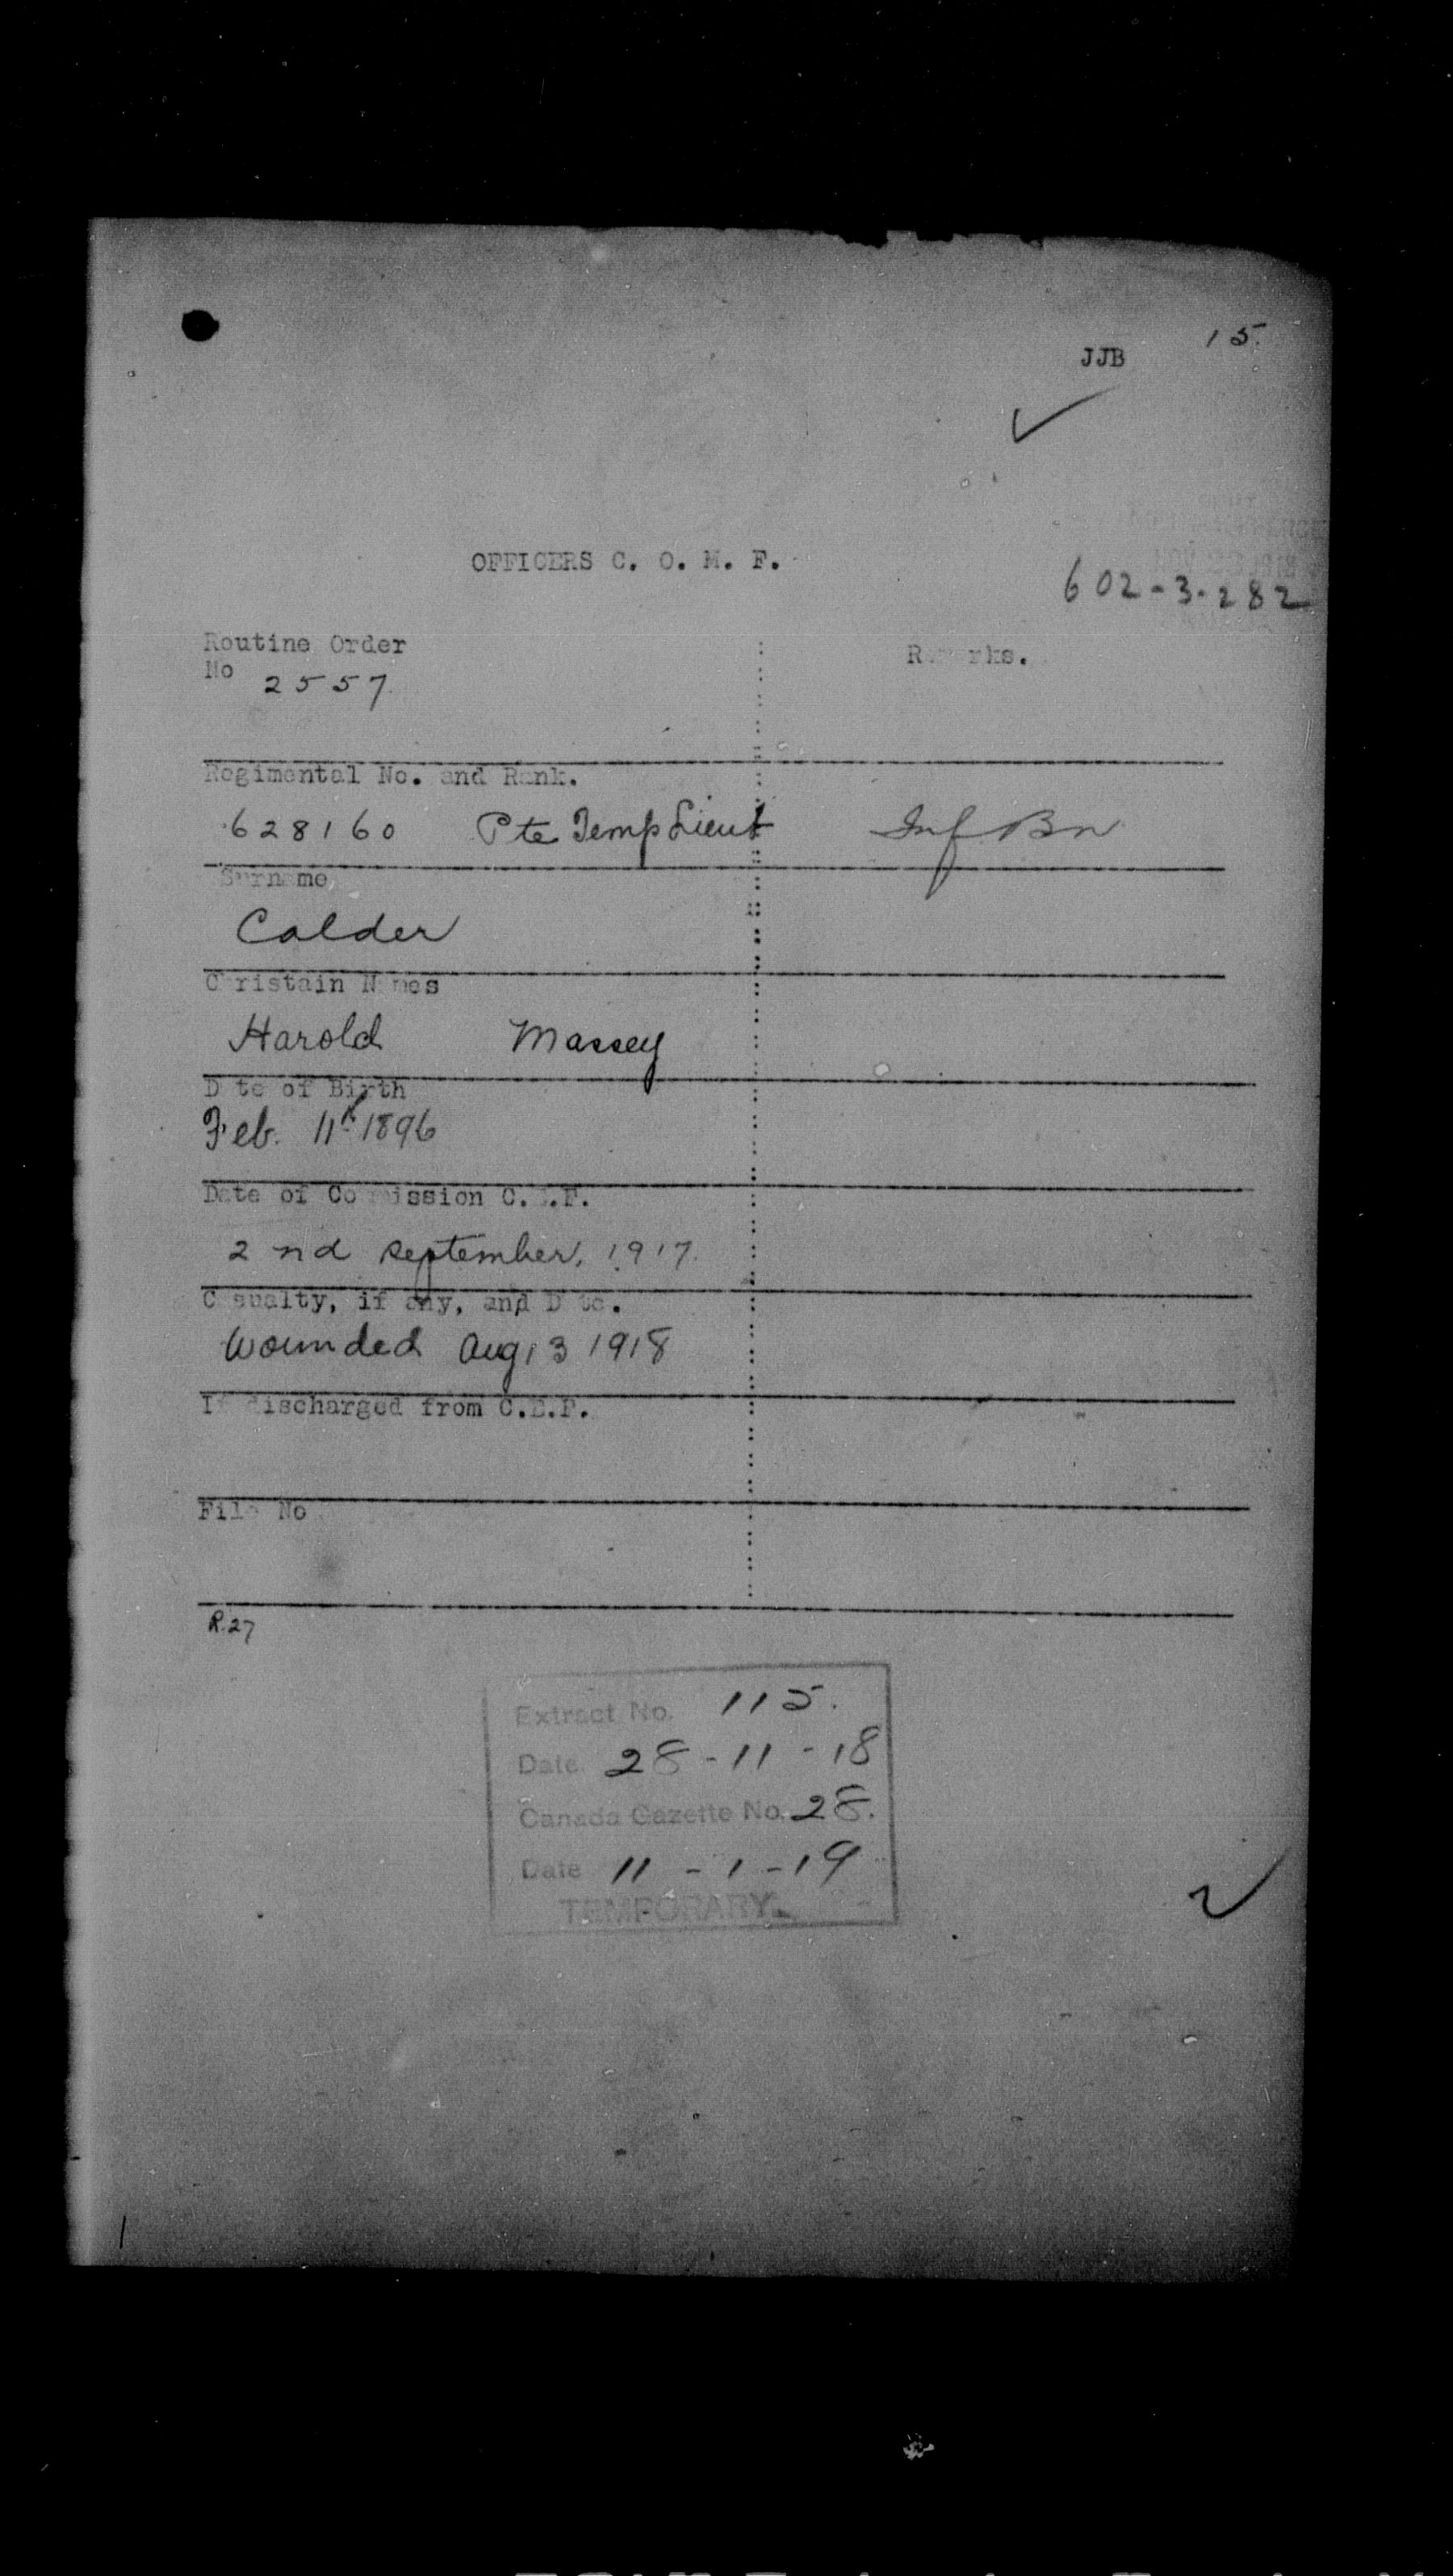 15.
JJB
OFFICERS C. O. M. F.
602-3-282
Routine Order
No 2557
Remarks.
Regimental No. and Rank.
628160 Pte Temp Lieut Inf Bn
Surname
Calder
Christain Names
Harold Massey
Date of Birth
Feb. 11th 1896
Date of Commission C.E.F.
2nd september, 1917.
Casualty, if any, and Date.
Wounded Aug 13 1918
If discharged from C.E.F.
File No
R.27
Extract No. 115.
Date 28-11-18
Canada Gazette No. 28.
Date 11-1-19
TEMPORARY